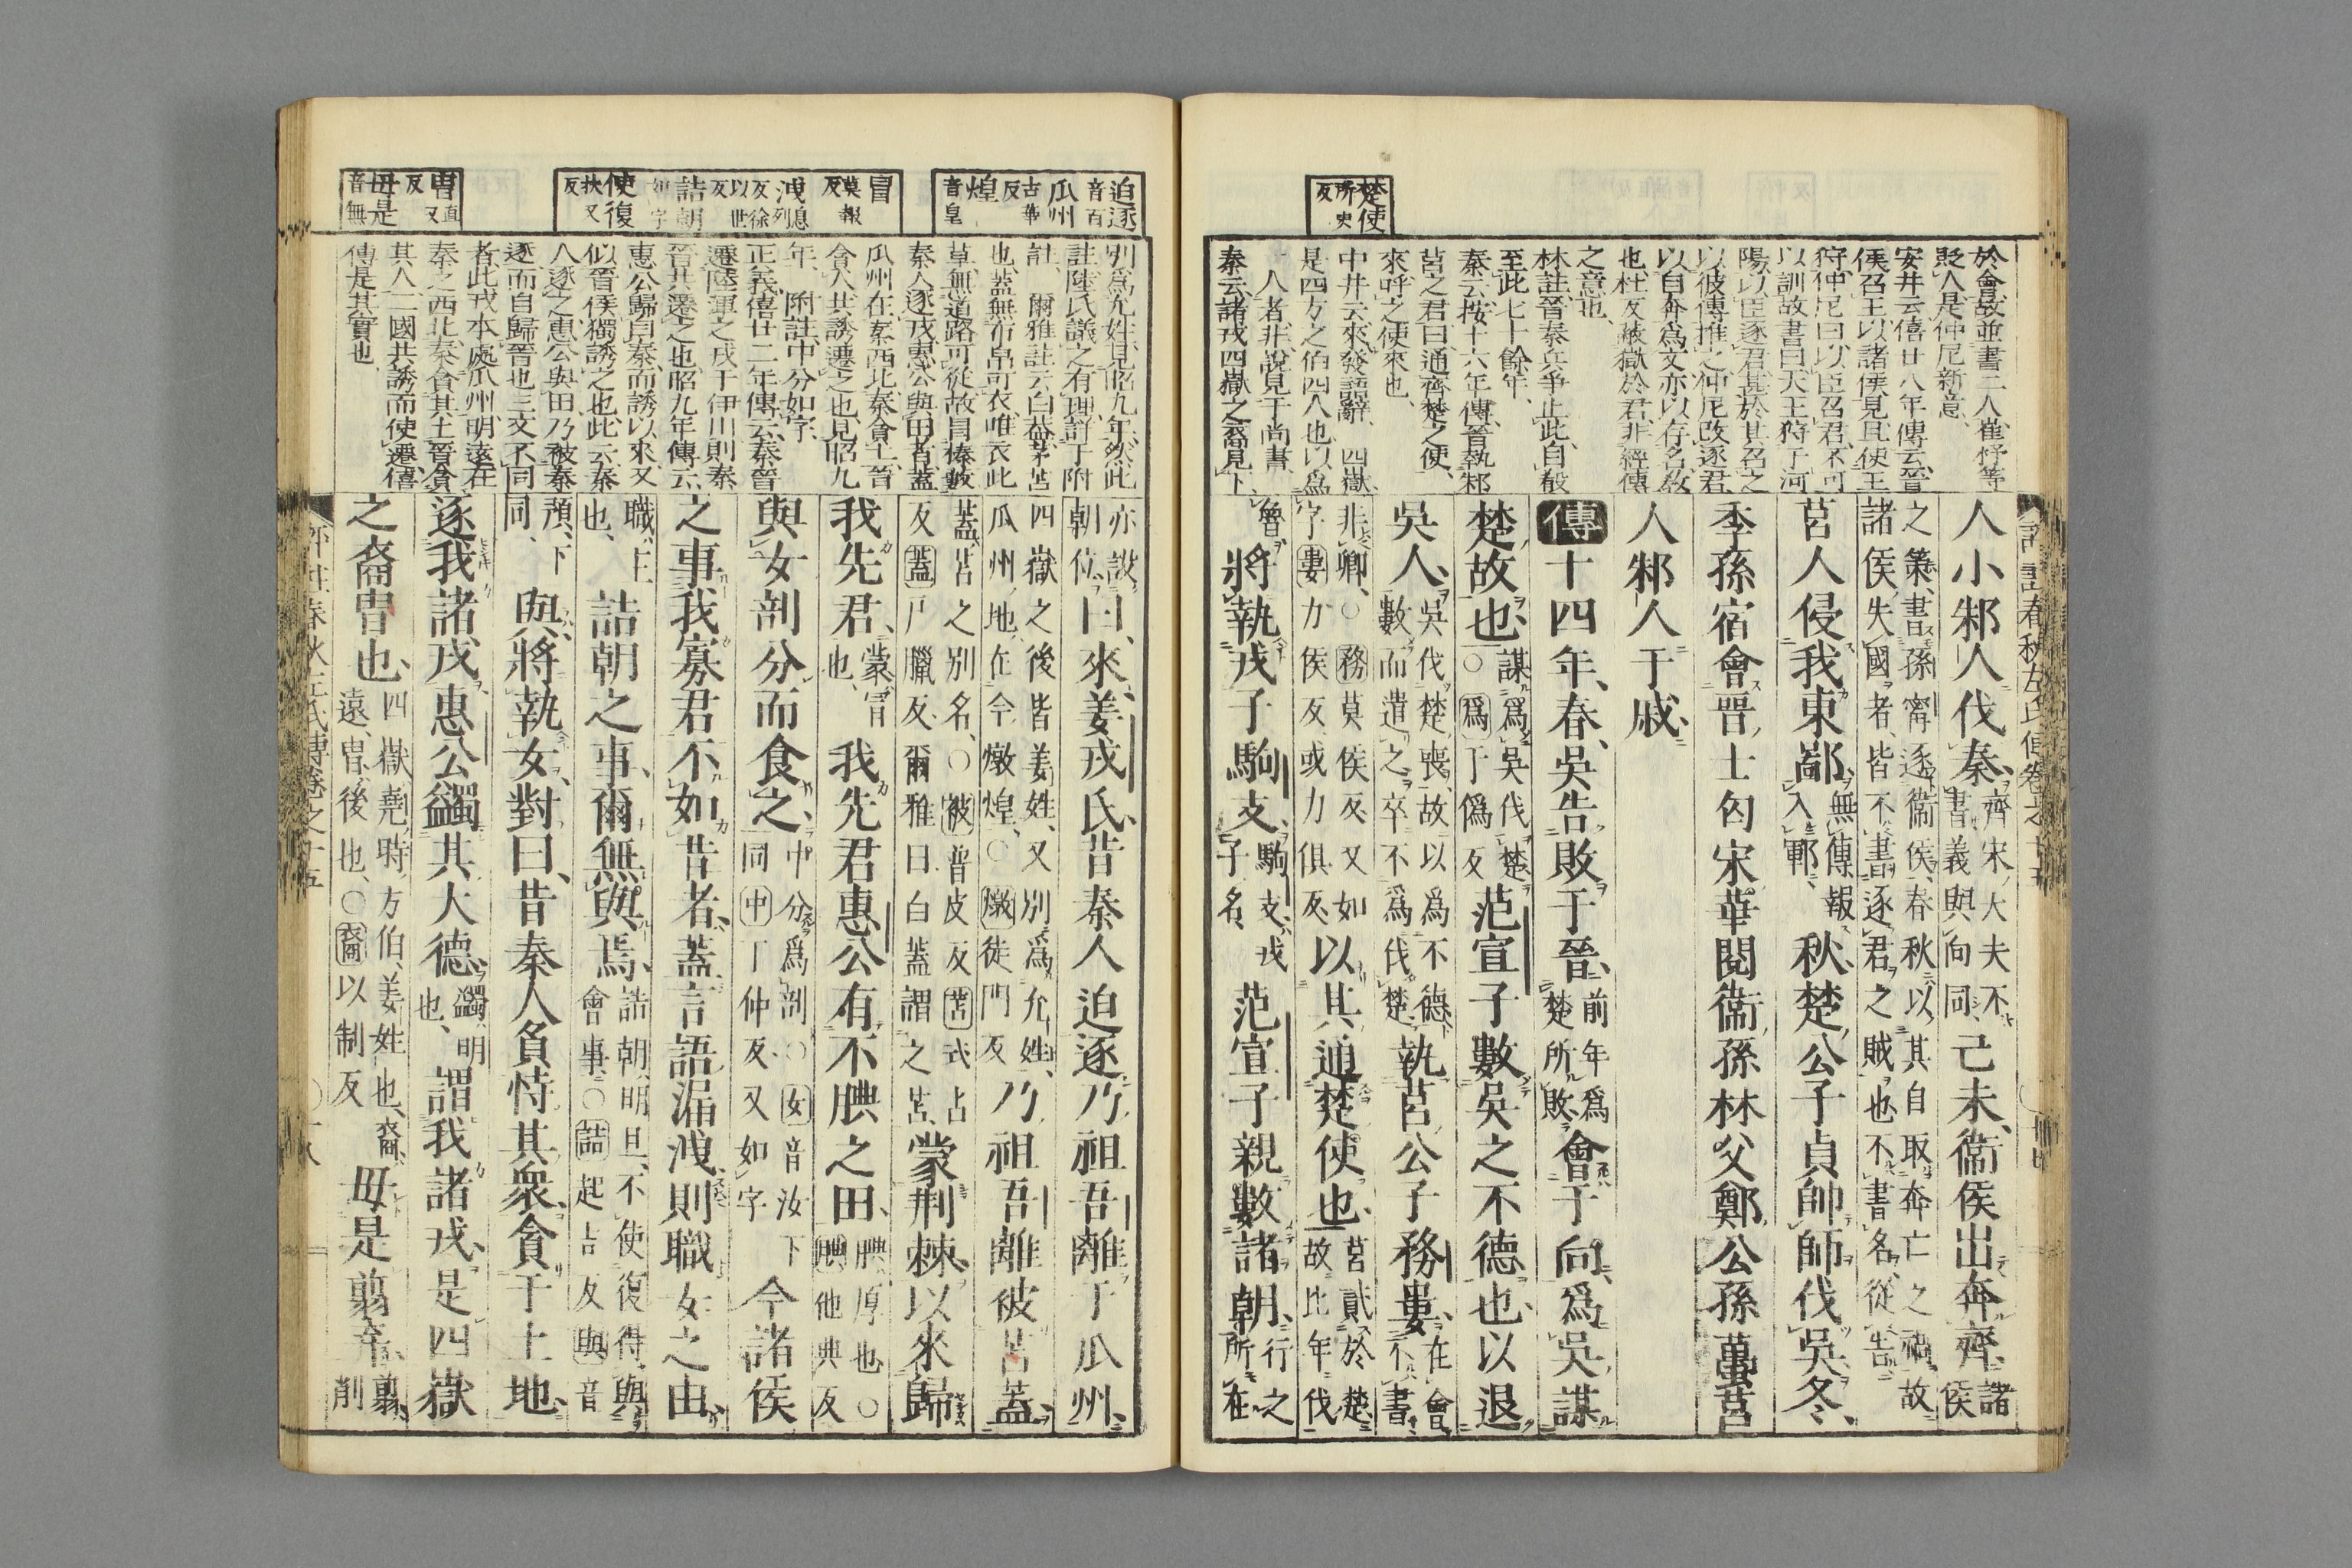 楚使所吏反
於會故並書二人崔杼等
貶人是仲尼新意
安井云僖廿八年傳云晉
侯召王以諸侯見且使王
狩仲尼曰以臣召君不可
以訓故書曰天王狩于河
陽以臣逐君甚於其召之
以彼傳推之仲尼改逐君
以自奔爲文亦以存名教
也杜反蔽獄於君非經傳
之意也
林註晉秦兵爭止此自殽
至此七十餘年
秦云按十六年傳晉執邾
莒之君曰通齊楚之使
來呼之使來也
中井云來發語辭 四嶽
是四方之伯四人也以爲
一人者非說見于尚書
秦云諸戎四嶽之裔見下
人小邾人伐秦齊宋大夫不書義與向同己未衞侯出奔齊諸侯
之策書孫甯逐衞侯春秋以其自取奔亡之禍故諸侯失國者皆不書逐君之賊也不書名從告
莒人侵我東鄙無傳報入鄆秋楚公子貞帥師伐吳冬
季孫宿會晉士匄宋華閱衞孫林父鄭公孫蠆莒
人邾人于戚
傳十四年春吳告敗于晉前年爲楚所敗會于向爲吳謀
楚故也謀爲吳伐楚○爲于僞反范宣子數吳之不德也以退
吳人吳伐楚喪故以爲不德數而遣之卒不爲伐楚執莒公子務婁在會不書
非卿○務莫侯反又如字婁力侯反或力俱反以其通楚使也莒貳於楚故比年伐
魯將執戎子駒支駒支戎子名范宣子親數諸朝行之所在
迫逐音百瓜州古華反煌音皇
冒莫報反洩息列反徐以世反詰朝如字使復扶又反
冑直又反毋是音無
別爲允姓見昭九年然此
註陸氏議之有理詳于附
註 爾雅註云白蓋茅苫
也蓋無布帛可衣唯衣此
草無道路可從故冒榛藪
秦人逐戎惠公與田者蓋
瓜州在秦西北秦貪土晉
貪人共誘遷之也見昭九
年 附註中分如字
正義僖廿二年傳云秦晉
遷陸渾之戎于伊川則秦
晉共遷之也昭九年傳云
惠公歸自秦而誘以來又
似晉侯獨誘之也此云秦
人逐之惠公與田乃被秦
逐而自歸晉也三文不同
者此戎本處瓜州明遠在
秦之西北秦貪其土晉貪
其人二國共誘而使遷僖
傳是其實也
亦設朝位曰來姜戎氏昔秦人迫逐乃祖吾離于瓜州
四嶽之後皆姜姓又別爲允姓瓜州地在今燉煌○燉徒門反乃祖吾離被苫蓋
蓋苫之別名○被普皮反苫式占反蓋戸臘反爾雅曰白蓋謂之苫蒙荆棘以來歸
我先君蒙冒也我先君惠公有不腆之田腆厚也○腆他典反
與女剖分而食之中分爲剖○女音汝下同中丁仲反又如字今諸侯
之事我寡君不如昔者蓋言語漏洩則職女之由
職主也詰朝之事爾無與焉詰朝明旦不使復得與會事○詰起吉反與音
預下同與將執女對曰昔秦人負恃其衆貪于土地
逐我諸戎惠公蠲其大德蠲明也謂我諸戎是四嶽
之裔冑也四嶽堯時方伯姜姓也裔遠冑後也○裔以制反毋是翦弃翦削